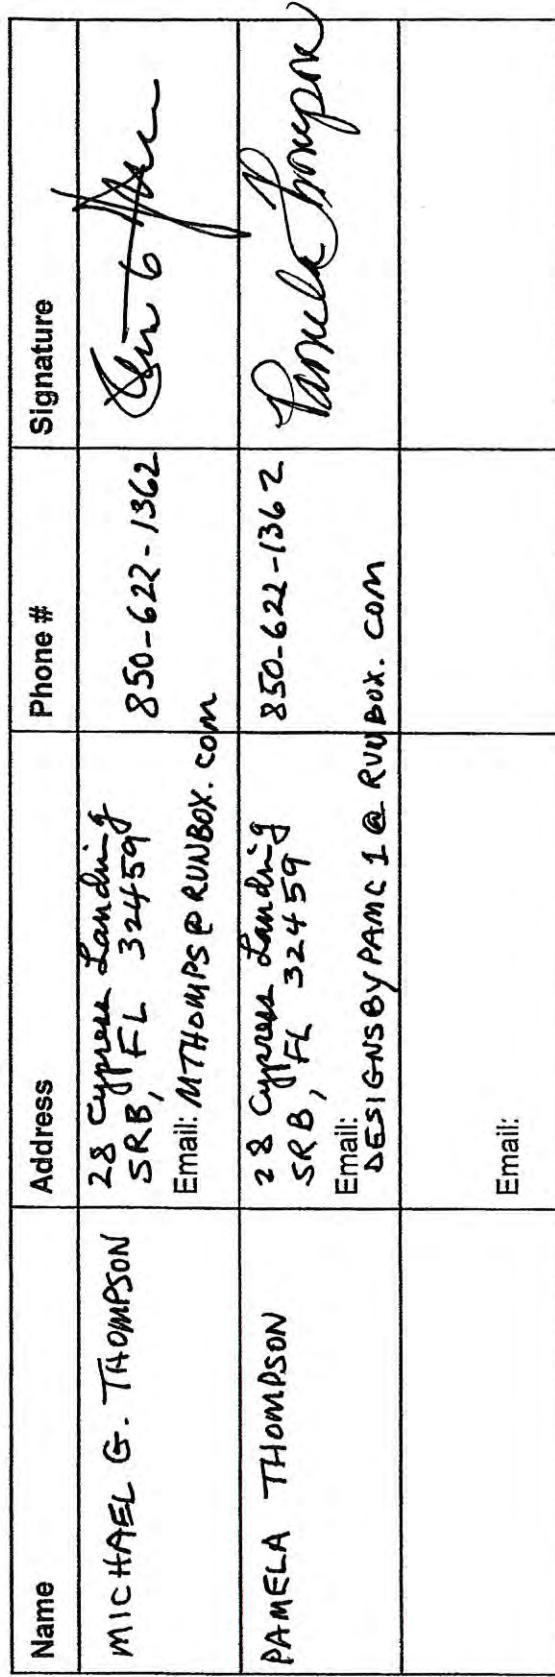 Name Address Phone # Signature
MICHAEL G. THOMPSON
28 Cypress Landing
SRB, FL 32459
Email: MTHOMPS@RUNBOX.COM
850-622-1362
PAMELA THOMPSON
28 Cypress Landing
SRB, FL 32459
Email:
DESIGNSBYPAMC1@RUNBOX.COM
850-622-1362
Pamela Thompson
Email: